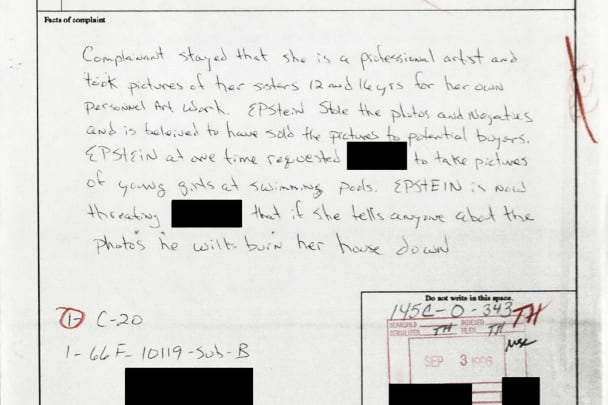 Facts of complaint
Complainant stayed that she is a professional artist and
took pictures of her sisters 12 and 16 yrs for her own
personnel Art work. EPStein Stole the photos and Negatives
and is beleived to have sold the pictures to potential buyers.
EPSTEIN at one time requested to take pictures
of young girls at swimming pools. EPSTEIN is now
threating that if she tells anyone about the
photos he will burn her house down
Do not write in this space.
145C-0-343 TH
SEARCHED INDEXED
SERIALIZED TH FILED TH
SEP 3 1996
1- C-20
1-66F-10119-Sub-B